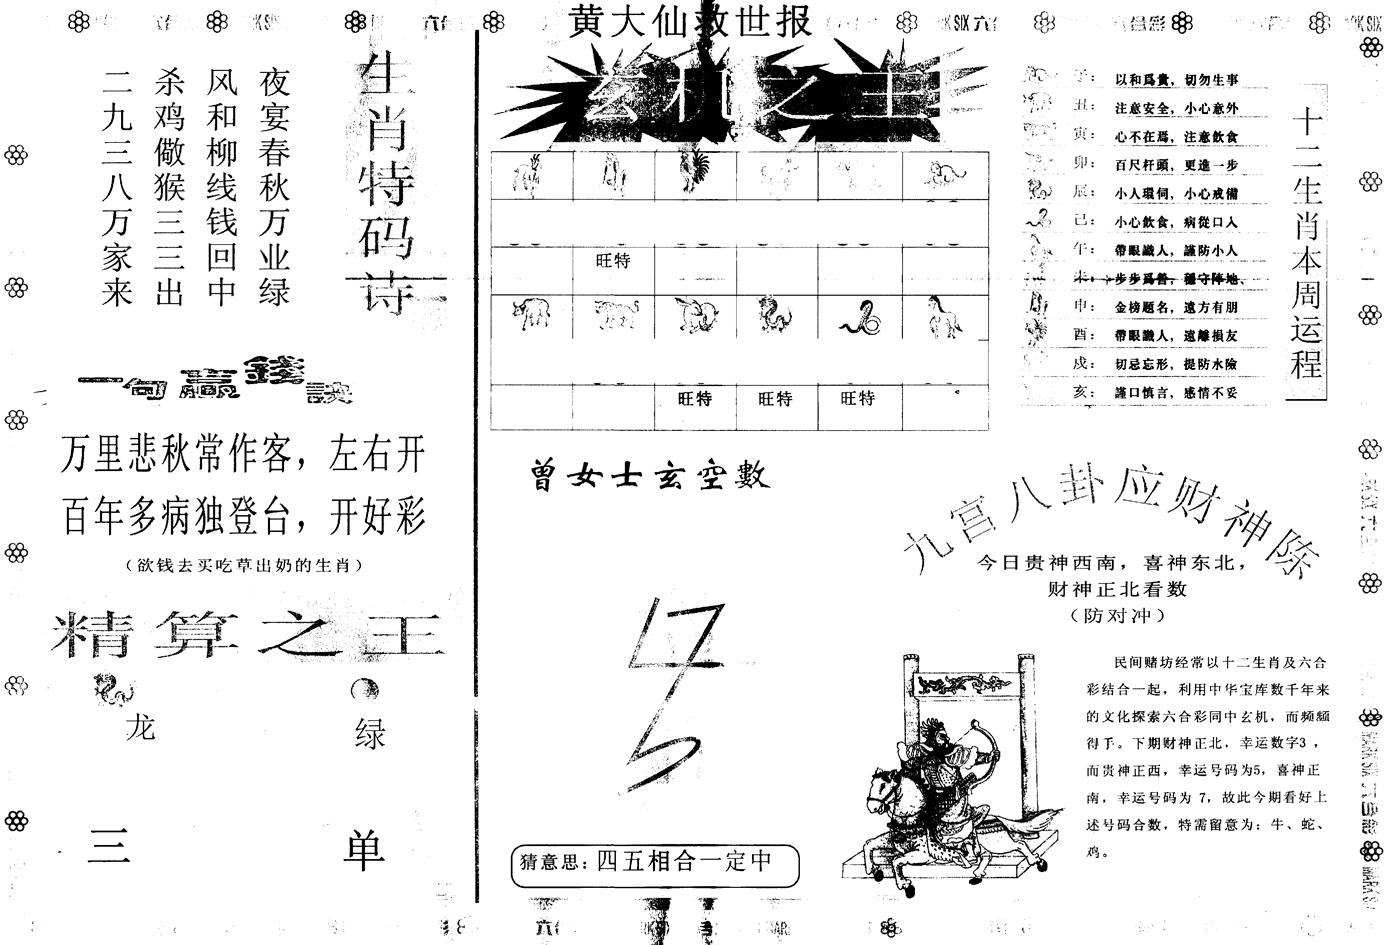 黄大仙救世报
生肖特码诗
夜宴春秋万业绿
风和柳线钱回中
杀鸡儆猴三三出
二九三八万家来
一句赢錢訣
万里悲秋常作客，左右开
百年多病独登台，开好彩
（欲钱去买吃草出奶的生肖）
精算之王
龙
绿
三
单
玄机之王
旺特
旺特 旺特 旺特
曾女士玄空數
猜意思：四五相合一定中
十二生肖本周运程
子：以和爲貴，切勿生事
丑：注意安全，小心意外
寅：心不在焉，注意飲食
卯：百尺杆頭，更進一步
辰：小人環伺，小心戒備
己：小心飲食，病從口入
午：帶眼識人，謹防小人
未：步步爲營，穩守陣地、
申：金榜題名，遠方有朋
酉：帶眼識人，遠離損友
戍：切忌忘形，提防水險
亥：謹口慎言，感情不妥
九宫八卦应财神陈
今日贵神西南，喜神东北，
财神正北看数
（防对冲）
民间赌坊经常以十二生肖及六合
彩结合一起，利用中华宝库数千年来
的文化探索六合彩同中玄机，而频频
得手。下期财神正北，幸运数字3，
而贵神正西，幸运号码为5，喜神正
南，幸运号码为 7，故此今期看好上
述号码合数，特需留意为：牛、蛇、
鸡。